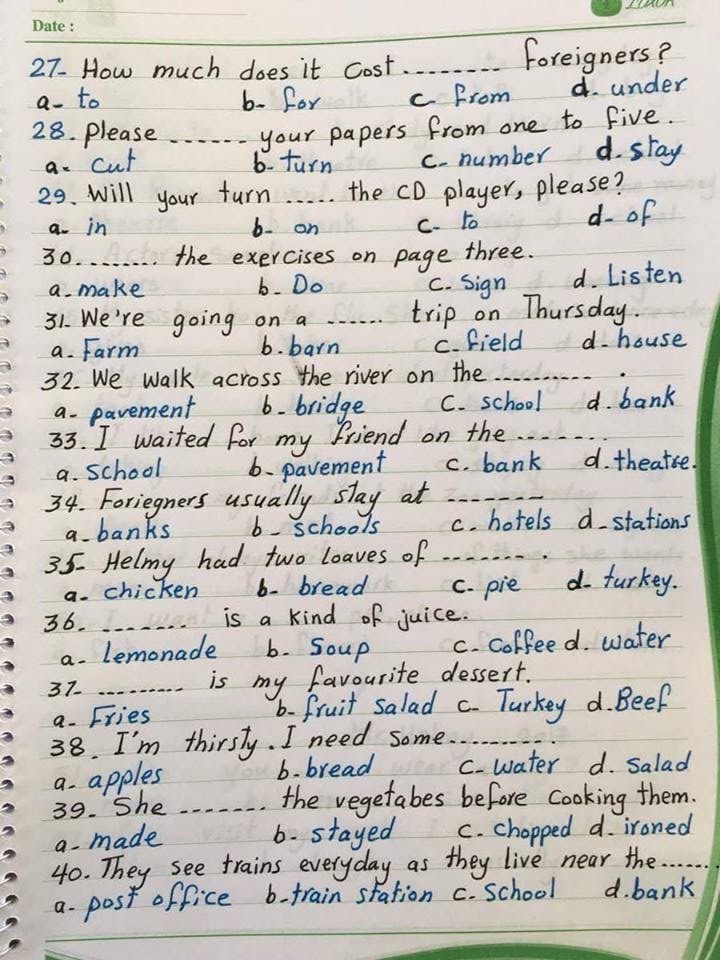 Date :
27- How much does it cost........ foreigners?
a- to b- for c- from d- under
28. please ....... your papers from one to five.
a- cut b- turn c- number d- stay
29. Will your turn ..... the CD player, please?
a- in b- on c- to d- of
30........ the exercises on page three.
a- make b- Do c- Sign d- Listen
31. We're going on a ...... trip on Thursday.
a. Farm b. barn c. field d- house
32. We walk across the river on the .......... .
a- pavement b- bridge c- school d. bank
33. I waited for my friend on the ........
a. school b- pavement c. bank d. theatre.
34. Foriegners usually stay at .......
a- banks b- schools c. hotels d- stations
35- Helmy had two loaves of .......
a- chicken b- bread c- pie d- turkey.
36. ....... is a kind of juice.
a. lemonade b. Soup c. Coffee d. water
37- ......... is my favourite dessert.
a- Fries b- fruit salad c- Turkey d. Beef
38. I'm thirsty. I need some..........
a- apples b. bread c- water d. salad
39- She ....... the vegetabes before cooking them.
a- made b- stayed c- chopped d. ironed
40. They see trains everyday as they live near the......
a- post office b-train station c- School d. bank